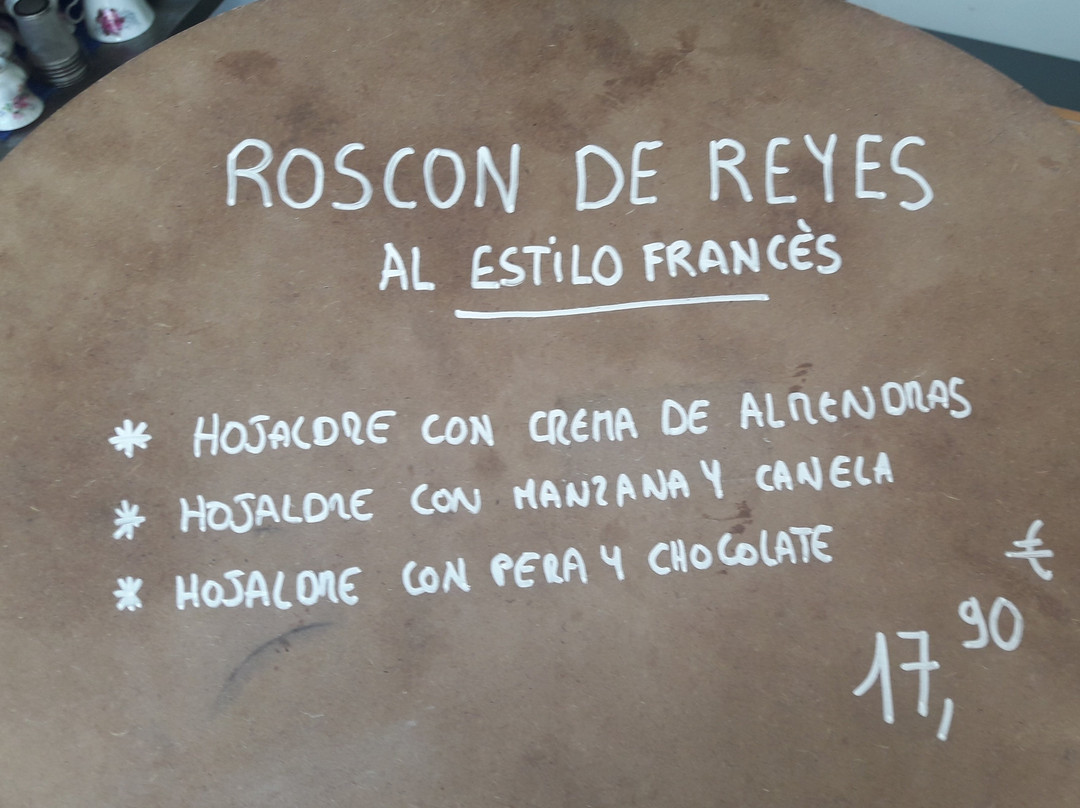 ROSCON DE REYES
AL ESTILO FRANCÈS
* HOJALDRE CON CREMA DE ALMENDRAS
* HOJALDRE CON MANZANA Y CANELA
* HOJALDRE CON PERA Y CHOCOLATE
€
17,90